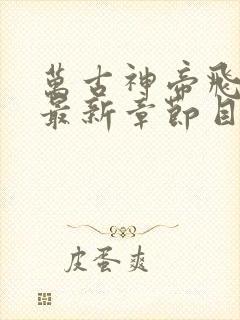 萬古神帝飛
最新章節目
皮蛋爽